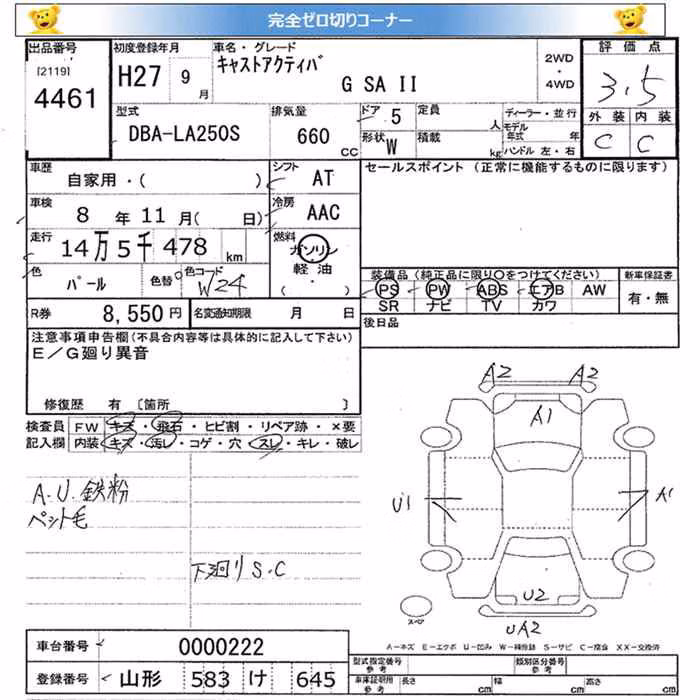 完全ゼロ切りコーナー
出品番号
[2119]
4461
初度登録年月
H27 9 月
車名・グレード
キャストアクティバ
G SA II
2WD
・
4WD
評価点
3.5
外装 内装
C C
型式
DBA-LA250S
排気量
660 CC
ドア 5
形状 W
定員 人
積載 kg
ディーラー・並行
モデル年式 年
ハンドル 左・右
車歴
自家用・( )
シフト AT
セールスポイント (正常に機能するものに限ります)
車検 8 年 11 月( 日)
冷房 AAC
走行 14 万 5 千 478 km
燃料 ガソリン
軽油
( ・ )
色 パール 色替 色コード W24
装備品(純正品に限り○をつけてください)
PS PW ABS エアB AW
SR ナビ TV カワ
新車保証書
有・無
R券 8,550 円 名変通知期限 月 日
後日品
注意事項申告欄(不具合内容等は具体的に記入して下さい)
E/G廻り異音
修復歴 有 〔箇所 〕
検査員記入欄
FW キズ・飛石・ヒビ割・リペア跡・×要
内装 キズ・汚レ・コゲ・穴・スレ・キレ・破レ
A.U.鉄粉
ペット毛
下廻りS.C
A2 A2
A1
U1 A1
U2
UA2
スペア
A-キズ E-エクボ U-凹み W-補修跡 S-サビ C-腐食 XX-交換済
車台番号 0000222
登録番号 山形 583 け 645
型式指定番号 参考
類別区分番号 参考
車庫証明用 参考 長さ cm 幅 cm 高さ cm